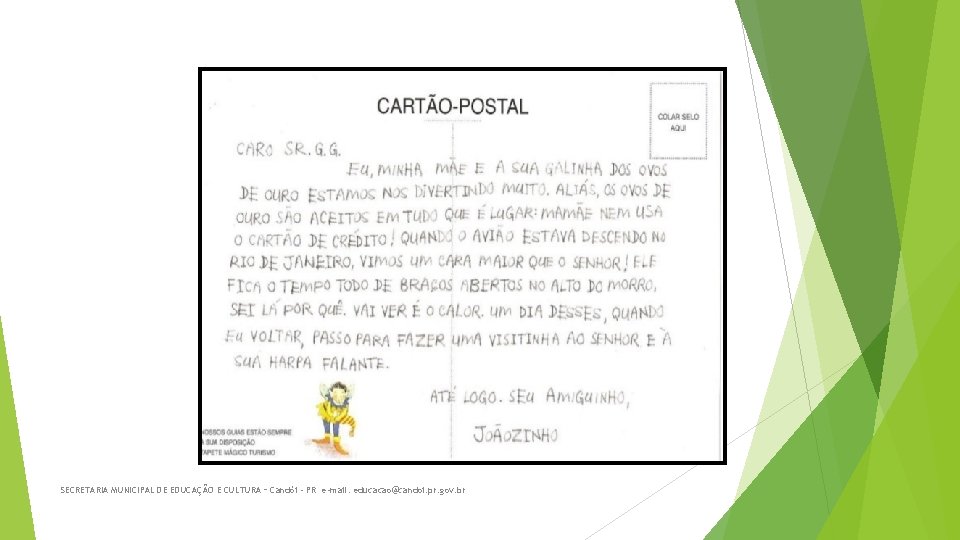 CARTÃO-POSTAL
COLAR SELO
AQUI
CARO SR. G.G.
EU, MINHA MÃE E A SUA GALINHA DOS OVOS
DE OURO ESTAMOS NOS DIVERTINDO MUITO. ALIÁS, OS OVOS DE
OURO SÃO ACEITOS EM TUDO QUE É LUGAR: MAMÃE NEM USA
O CARTÃO DE CRÉDITO! QUANDO O AVIÃO ESTAVA DESCENDO NO
RIO DE JANEIRO, VIMOS UM CARA MAIOR QUE O SENHOR! ELE
FICA O TEMPO TODO DE BRAÇOS ABERTOS NO ALTO DO MORRO,
SEI LÁ POR QUÊ. VAI VER É O CALOR. UM DIA DESSES, QUANDO
EU VOLTAR, PASSO PARA FAZER UMA VISITINHA AO SENHOR E À
SUA HARPA FALANTE.
ATÉ LOGO. SEU AMIGUINHO,
JOÃOZINHO
NOSSOS GUIAS ESTÃO SEMPRE
A SUA DISPOSIÇÃO
TAPETE MÁGICO TURISMO
SECRETARIA MUNICIPAL DE EDUCAÇÃO E CULTURA – Candói - PR e-mail. educacao@candoi.pr.gov.br